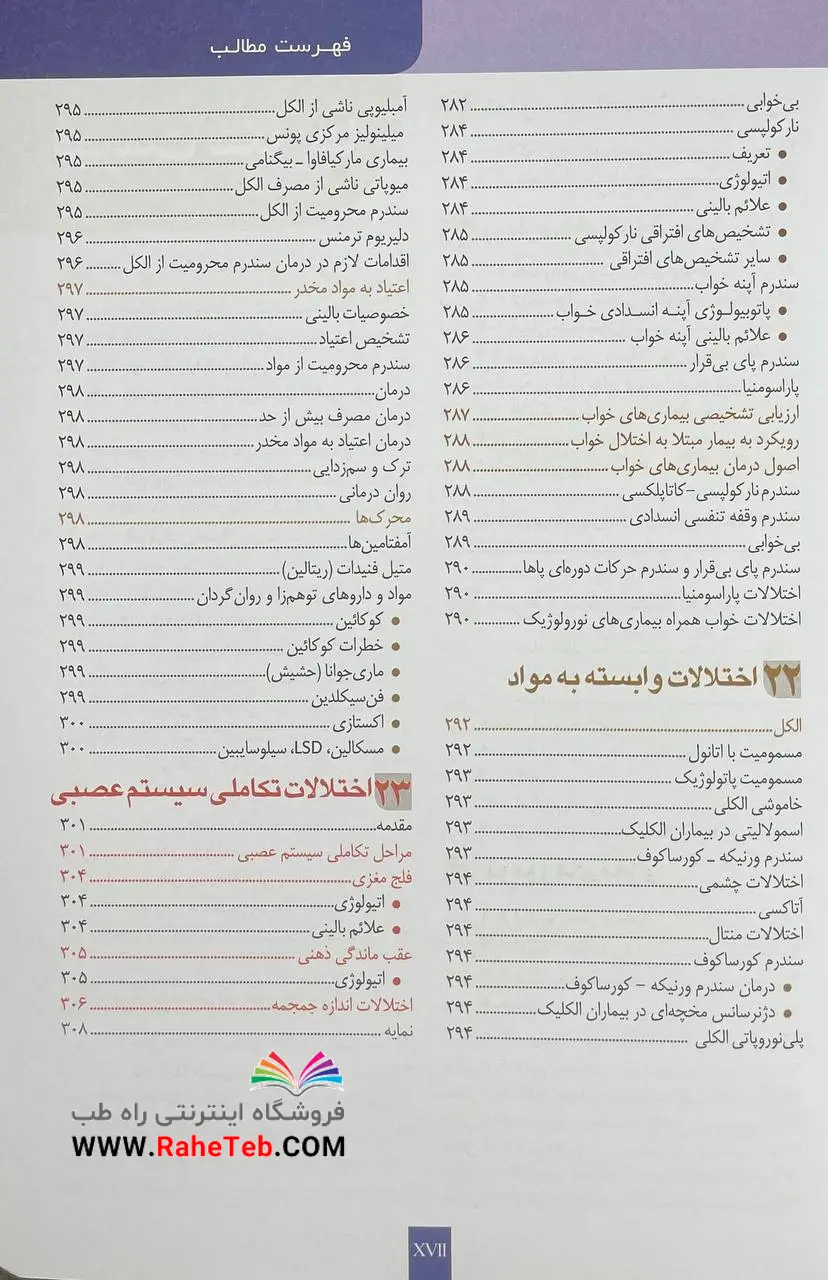 فهرست مطالب
بی‌خوابی ........ ۲۸۲
نارکولپسی ........ ۲۸۴
• تعریف ........ ۲۸۴
• اتیولوژی ........ ۲۸۴
• علائم بالینی ........ ۲۸۴
• تشخیص‌های افتراقی نارکولپسی ........ ۲۸۵
• سایر تشخیص‌های افتراقی ........ ۲۸۵
سندرم آپنه خواب ........ ۲۸۵
• پاتوبیولوژی آپنه انسدادی خواب ........ ۲۸۵
• علائم بالینی آپنه خواب ........ ۲۸۶
سندرم پای بی‌قرار ........ ۲۸۶
پاراسومنیا ........ ۲۸۶
ارزیابی تشخیصی بیماری‌های خواب ........ ۲۸۷
رویکرد به بیمار مبتلا به اختلال خواب ........ ۲۸۸
اصول درمان بیماری‌های خواب ........ ۲۸۸
سندرم نارکولپسی-کاتاپلکسی ........ ۲۸۸
سندرم وقفه تنفسی انسدادی ........ ۲۸۹
بی‌خوابی ........ ۲۸۹
سندرم پای بی‌قرار و سندرم حرکات دوره‌ای پاها ........ ۲۹۰
اختلالات پاراسومنیا ........ ۲۹۰
اختلالات خواب همراه بیماری‌های نورولوژیک ........ ۲۹۰
۲۲ اختلالات وابسته به مواد
الکل ........ ۲۹۲
مسمومیت با اتانول ........ ۲۹۲
مسمومیت پاتولوژیک ........ ۲۹۳
خاموشی الکلی ........ ۲۹۳
اسمولالیتی در بیماران الکلیک ........ ۲۹۳
سندرم ورنیکه ـ کورساکوف ........ ۲۹۳
اختلالات چشمی ........ ۲۹۴
آتاکسی ........ ۲۹۴
اختلالات منتال ........ ۲۹۴
سندرم کورساکوف ........ ۲۹۴
• درمان سندرم ورنیکه - کورساکوف ........ ۲۹۴
• دژنرسانس مخچه‌ای در بیماران الکلیک ........ ۲۹۴
پلی‌نوروپاتی الکلی ........ ۲۹۴
آمبلیوپی ناشی از الکل ........ ۲۹۵
میلینولیز مرکزی پونس ........ ۲۹۵
بیماری مارکیافاوا ـ بیگنامی ........ ۲۹۵
میوپاتی ناشی از مصرف الکل ........ ۲۹۵
سندرم محرومیت از الکل ........ ۲۹۵
دلیریوم ترمنس ........ ۲۹۶
اقدامات لازم در درمان سندرم محرومیت از الکل ........ ۲۹۶
اعتیاد به مواد مخدر ........ ۲۹۷
خصوصیات بالینی ........ ۲۹۷
تشخیص اعتیاد ........ ۲۹۷
سندرم محرومیت از مواد ........ ۲۹۷
درمان ........ ۲۹۸
درمان مصرف بیش از حد ........ ۲۹۸
درمان اعتیاد به مواد مخدر ........ ۲۹۸
ترک و سم‌زدایی ........ ۲۹۸
روان درمانی ........ ۲۹۸
محرک‌ها ........ ۲۹۸
آمفتامین‌ها ........ ۲۹۸
متیل فنیدات (ریتالین) ........ ۲۹۹
مواد و داروهای توهم‌زا و روان‌گردان ........ ۲۹۹
• کوکائین ........ ۲۹۹
• خطرات کوکائین ........ ۲۹۹
• ماری‌جوانا (حشیش) ........ ۲۹۹
• فن‌سیکلدین ........ ۲۹۹
• اکستازی ........ ۳۰۰
• مسکالین، LSD، سیلوسایبین ........ ۳۰۰
۲۳ اختلالات تکاملی سیستم عصبی
مقدمه ........ ۳۰۱
مراحل تکاملی سیستم عصبی ........ ۳۰۱
فلج مغزی ........ ۳۰۴
• اتیولوژی ........ ۳۰۴
• علائم بالینی ........ ۳۰۴
عقب ماندگی ذهنی ........ ۳۰۵
• اتیولوژی ........ ۳۰۵
اختلالات اندازه جمجمه ........ ۳۰۶
نمایه ........ ۳۰۸
فروشگاه اینترنتی راه طب
WWW.RaheTeb.COM
XVII